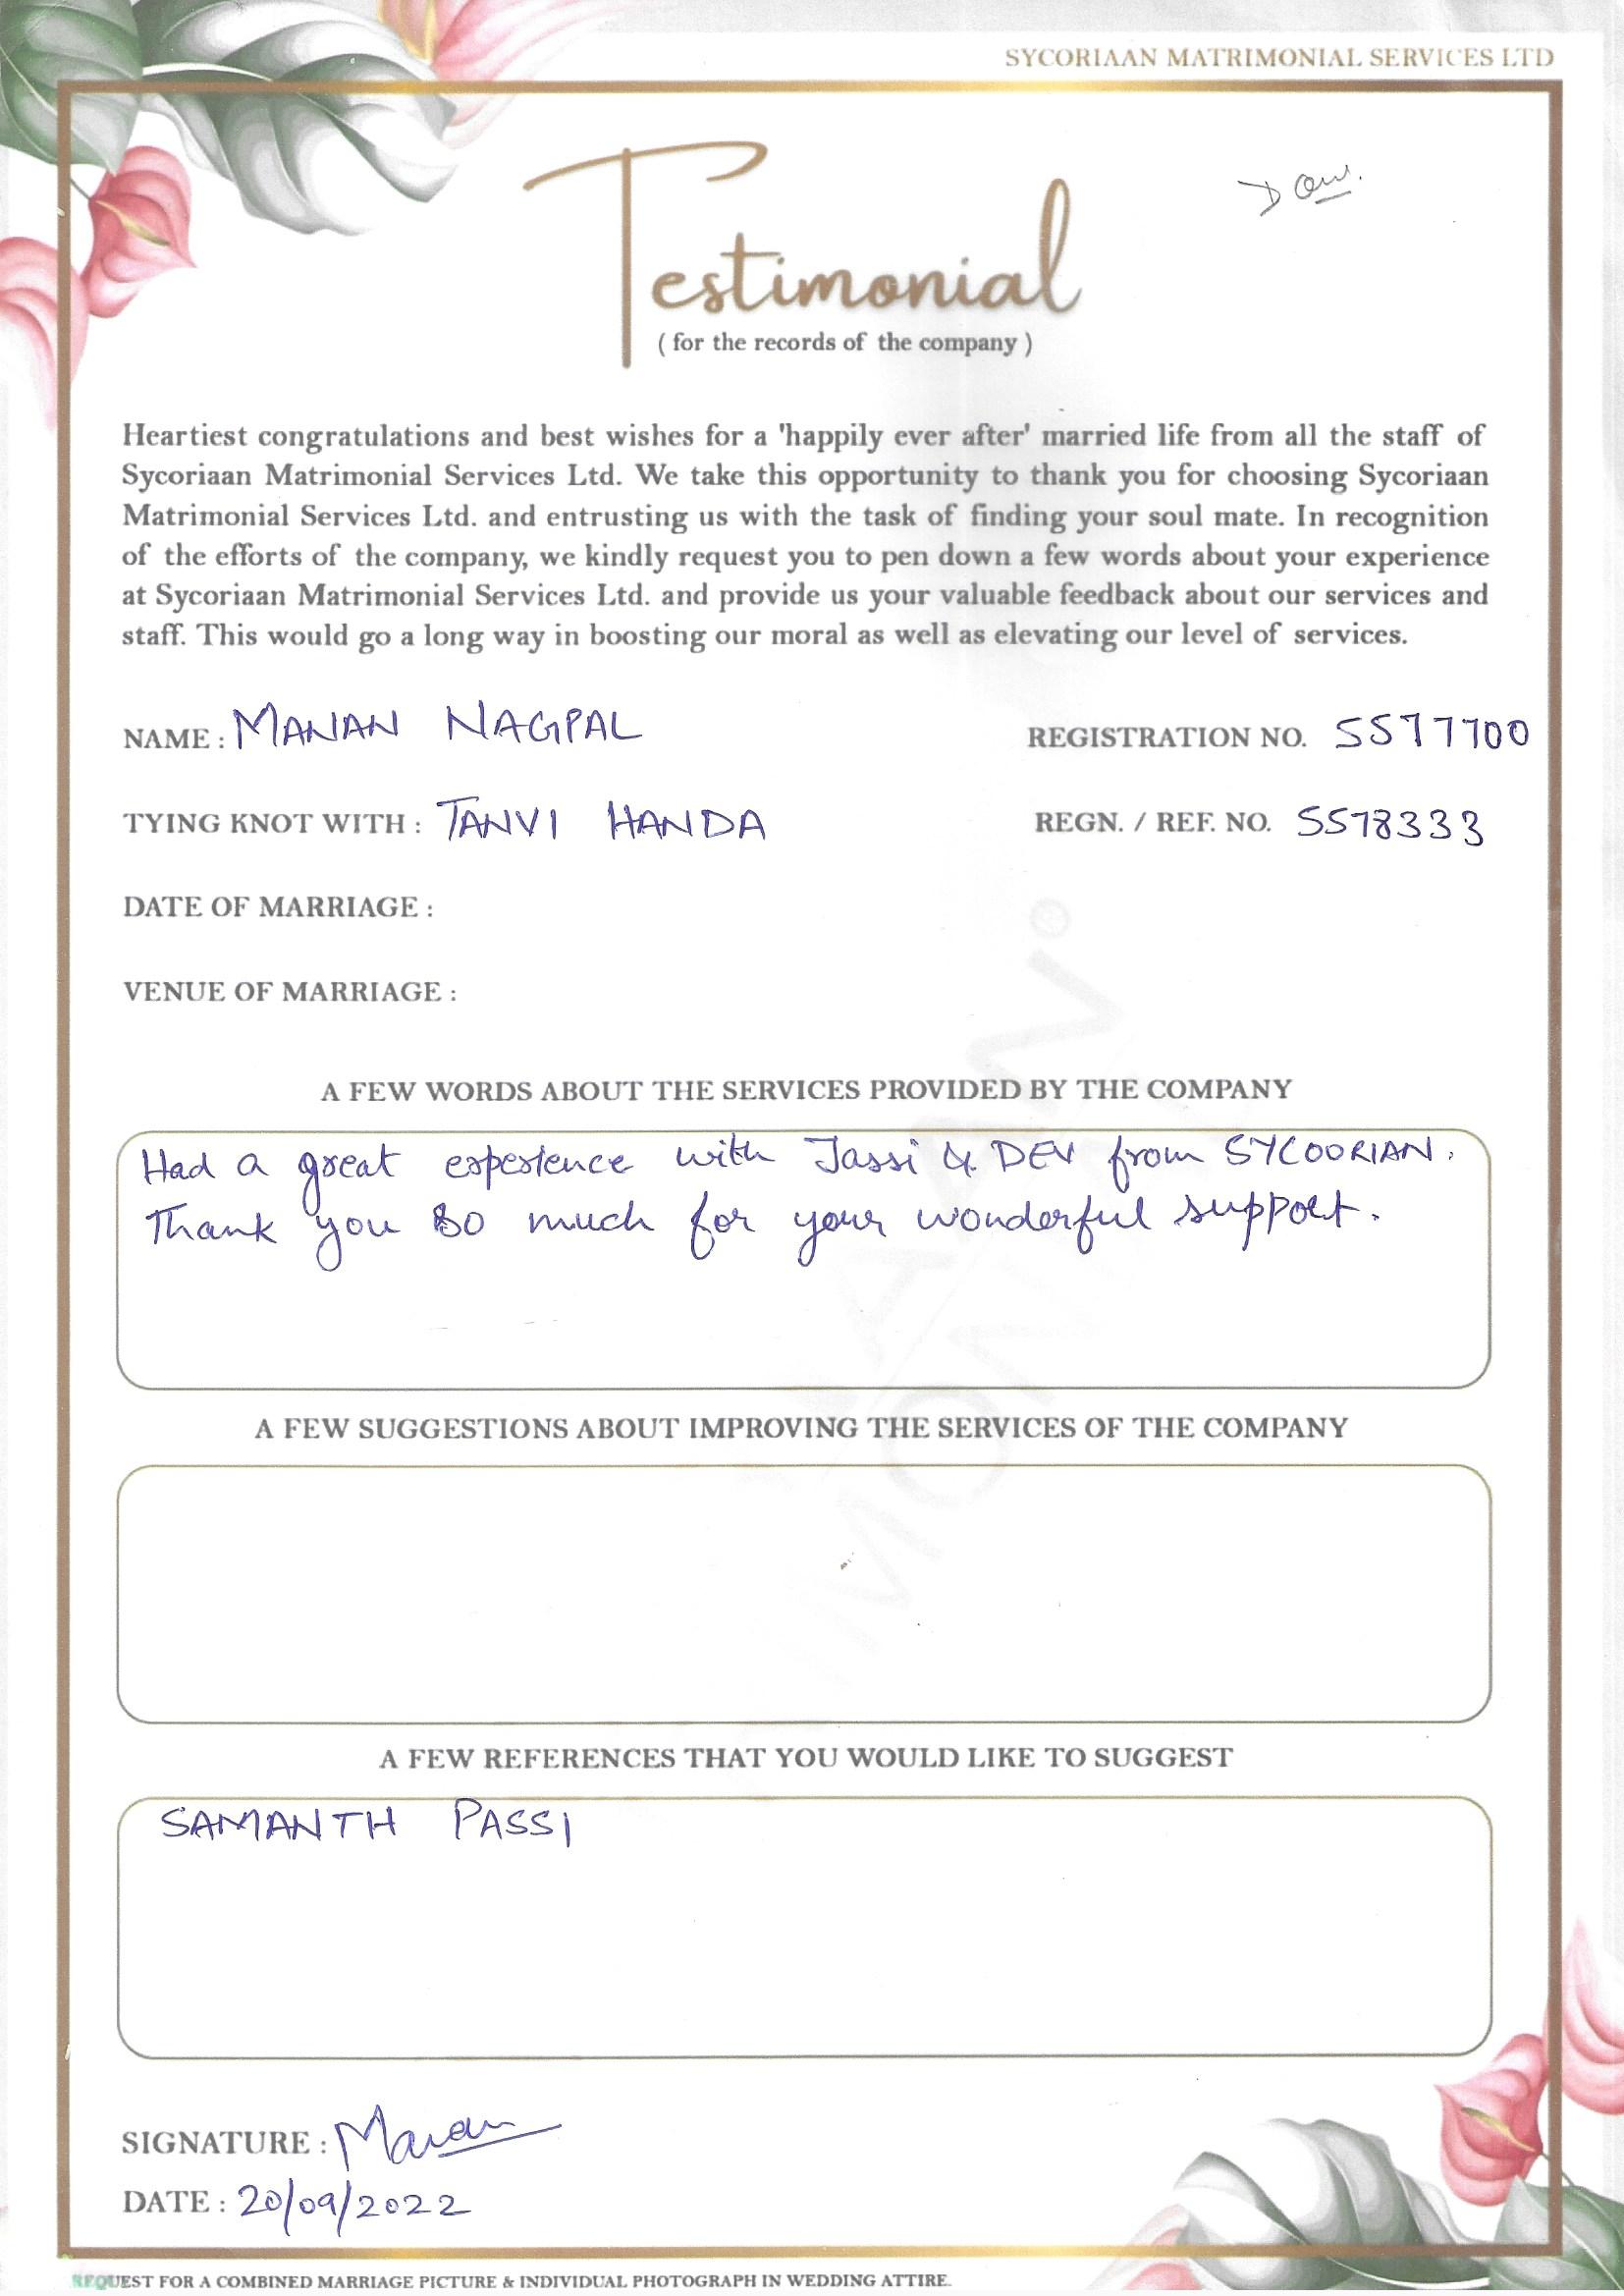 SYCORIAAN MATRIMONIAL SERVICES LTD
Testimonial
( for the records of the company )
Heartiest congratulations and best wishes for a 'happily ever after' married life from all the staff of
Sycoriaan Matrimonial Services Ltd. We take this opportunity to thank you for choosing Sycoriaan
Matrimonial Services Ltd. and entrusting us with the task of finding your soul mate. In recognition
of the efforts of the company, we kindly request you to pen down a few words about your experience
at Sycoriaan Matrimonial Services Ltd. and provide us your valuable feedback about our services and
staff. This would go a long way in boosting our moral as well as elevating our level of services.
NAME : MANAN NAGPAL REGISTRATION NO. SS77700
TYING KNOT WITH : TANVI HANDA REGN. / REF. NO. SS78333
DATE OF MARRIAGE :
VENUE OF MARRIAGE :
A FEW WORDS ABOUT THE SERVICES PROVIDED BY THE COMPANY
Had a great experience with Jassi & DEV from SYCOORIAN.
Thank you so much for your wonderful support.
A FEW SUGGESTIONS ABOUT IMPROVING THE SERVICES OF THE COMPANY
A FEW REFERENCES THAT YOU WOULD LIKE TO SUGGEST
SAMANTH PASSI
SIGNATURE : Manan
DATE : 20/09/2022
REQUEST FOR A COMBINED MARRIAGE PICTURE & INDIVIDUAL PHOTOGRAPH IN WEDDING ATTIRE.